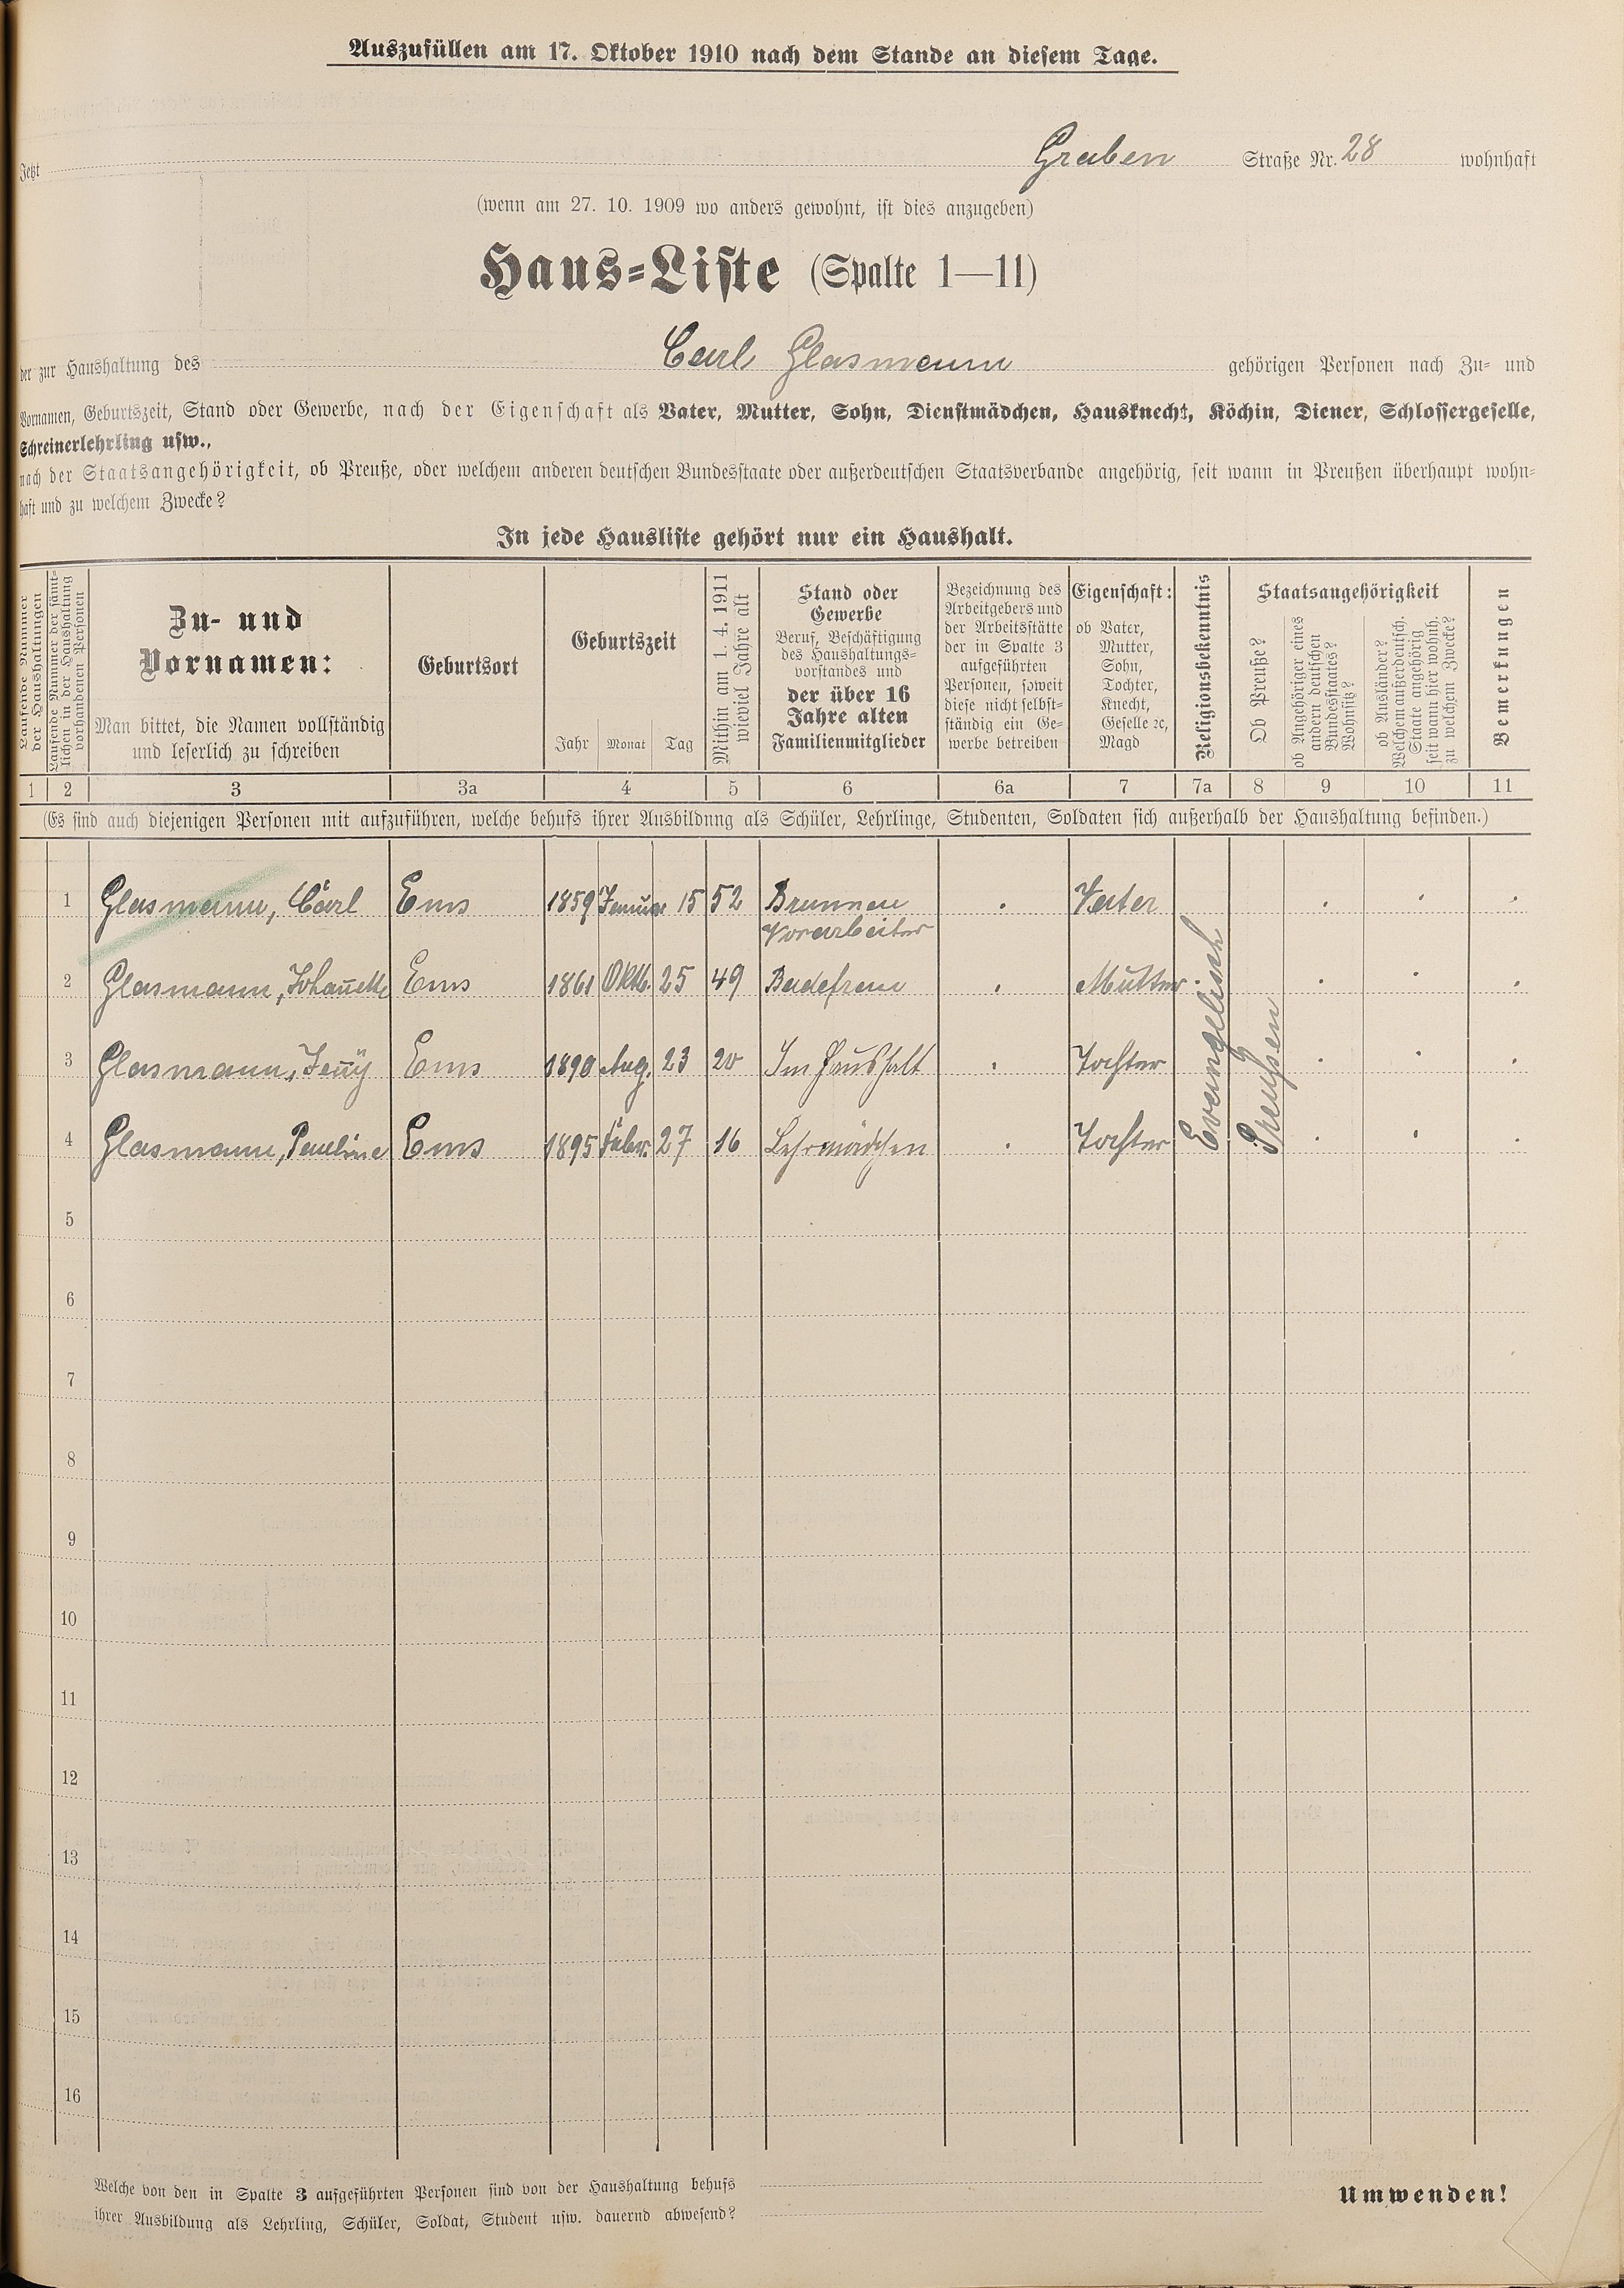 Auszufüllen am 17. Oktober 1910 nach dem Stande an diesem Tage.
Jetzt Graben Straße Nr. 28 wohnhaft
(wenn am 27. 10. 1909 wo anders gewohnt, ist dies anzugeben)
Haus-Liste (Spalte 1—11)
der zur Haushaltung des Carl Glasmann gehörigen Personen nach Zu- und
Vornamen, Geburtszeit, Stand oder Gewerbe, nach der Eigenschaft als Vater, Mutter, Sohn, Dienstmädchen, Hausknecht, Köchin, Diener, Schlossergeselle,
Schreinerlehrling usw.,
nach der Staatsangehörigkeit, ob Preuße, oder welchem anderen deutschen Bundesstaate oder außerdeutschen Staatsverbande angehörig, seit wann in Preußen überhaupt wohn-
haft und zu welchem Zwecke?
In jede Hausliste gehört nur ein Haushalt.
Laufende Nummer
der Haushaltungen
Laufende Nummer der sämt-
lichen in der Haushaltung
vorhandenen Personen
Zu- und
Vornamen:
Man bittet, die Namen vollständig
und leserlich zu schreiben
Geburtsort
Geburtszeit
Jahr Monat Tag
Mithin am 1. 4. 1911
wieviel Jahre alt
Stand oder
Gewerbe
Beruf, Beschäftigung
des Haushaltungs-
vorstandes und
der über 16
Jahre alten
Familienmitglieder
Bezeichnung des
Arbeitgebers und
der Arbeitsstätte
der in Spalte 3
aufgeführten
Personen, soweit
diese nicht selbst-
ständig ein Ge-
werbe betreiben
Eigenschaft:
ob Vater,
Mutter,
Sohn,
Tochter,
Knecht,
Geselle ꝛc,
Magd
Religionsbekenntnis
Staatsangehörigkeit
Ob Preuße?
ob Angehöriger eines
andern deutschen
Bundesstaates?
Wohnsitz?
ob Ausländer?
Welchem außerdeutsch.
Staate angehörig
seit wann hier wohnh.
zu welchem Zwecke?
Bemerkungen
1 2 3 3a 4 5 6 6a 7 7a 8 9 10 11
(Es sind auch diejenigen Personen mit aufzuführen, welche behufs ihrer Ausbildung als Schüler, Lehrlinge, Studenten, Soldaten sich außerhalb der Haushaltung befinden.)
1 Glasmann, Carl Ems 1859 Januar 15 52 Brunnen Vater
Vorarbeiter
2 Glasmann, Johan̅ette Ems 1861 Oktb. 25 49 Badefrau Mutter
3 Glasmann, Jen̅y Ems 1890 Aug. 23 20 Im Haushalt Tochter
4 Glasmann, Pauline Ems 1895 Febr. 27 16 Lehrmädchen Tochter
Evangelisch
Preußen
5
6
7
8
9
10
11
12
13
14
15
16
Welche von den in Spalte 3 aufgeführten Personen sind von der Haushaltung behufs
ihrer Ausbildung als Lehrling, Schüler, Soldat, Student usw. dauernd abwesend?
Umwenden!